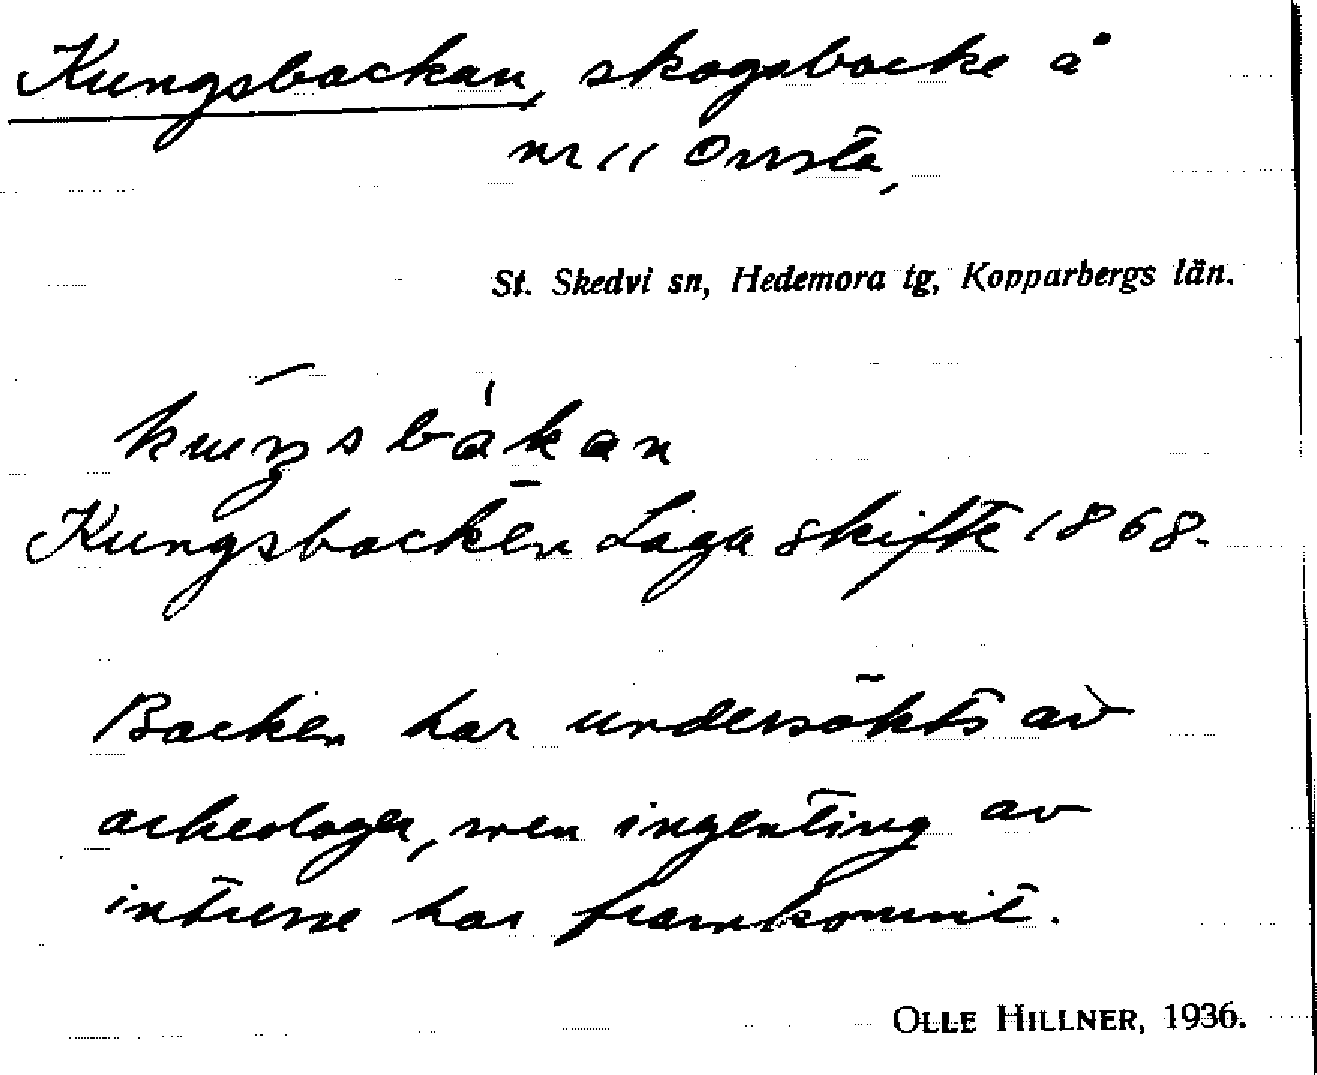 Kungsbackan, skogsbacke å
nr 11 Orrsta,
St. Skedvi sn, Hedemora tg, Kopparbergs län.
kuŋsbákan
Kungsbacken Laga skifte 1868.
Backen har undersökts av
arkeologer, men ingenting av
intresse har framkommit.
OLLE HILLNER, 1936.